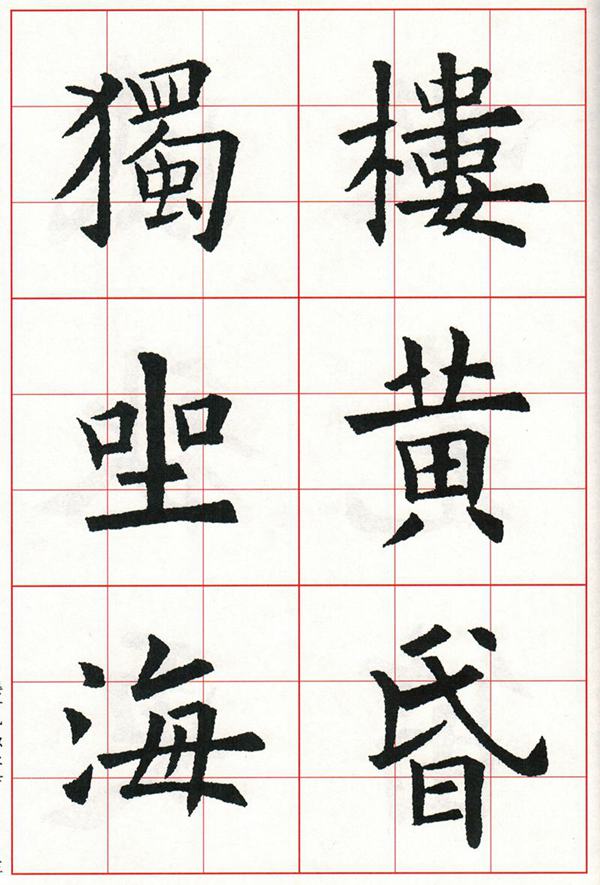 樓黃昏
獨坐海